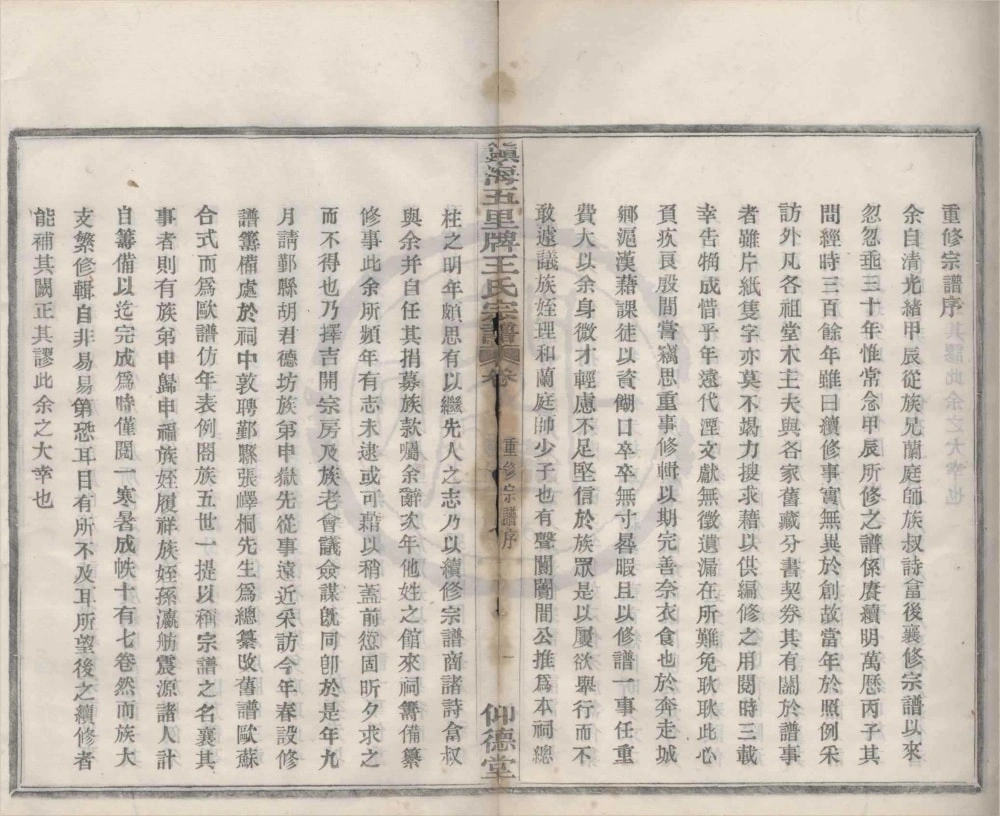 重修宗譜序
余自清光緒甲辰從族兄蘭庭師族叔詩倉後襄修宗譜以來
忽忽垂三十年惟常念甲辰所修之譜係賡續明萬厯丙子其
間經時三百餘年雖曰續修事實無異於創故當年於照例采
訪外凡各祖堂木主夫與各家舊藏分書契券其有關於譜事
者雖片紙隻字亦莫不竭力搜求藉以供編修之用閱時三載
幸告犕成惜乎年遠代湮文獻無徵遺漏在所難免耿耿此心
頁疚良殷間嘗竊思重事修輯以期完善奈衣食也於奔走城
鄉滬漢藉課徒以資餬口卒卒無寸晷暇且以修譜一事任重
費大以余身微才輕慮不足堅信於族眾是以屢欲舉行而不
敢遽議族姪理和蘭庭師少子也有聲闤闠間公推爲本祠總
鎮海五里牌王氏宗譜
卷
重修宗譜序
一
仰德堂
柱之明年頗思有以繼先人之志乃以續修宗譜商諸詩倉叔
與余并自任其捐募族款囑余辭次年他姓之館來祠籌備纂
修事此余所頻年有志未逮或可藉以稍蓋前愆固昕夕求之
而不得也乃擇吉開宗房及族老會議僉謀旣同卽於是年九
月請鄞縣胡君德坊族第申獄先從事遠近采訪今年春設修
譜籌備處於祠中敦聘鄞縣張嶧桐先生爲總纂改舊譜歐蘇
合式而爲歐譜仿年表例閤族五世一提以稱宗譜之名襄其
事者則有族第申歸申福族姪履祥族姪孫瀛舫震源諸人計
自籌備以迄完成爲時僅閱一寒暑成帙十有七卷然而族大
支繁修輯自非易易第恐耳目有所不及耳所望後之續修者
能補其闕正其謬此余之大幸也